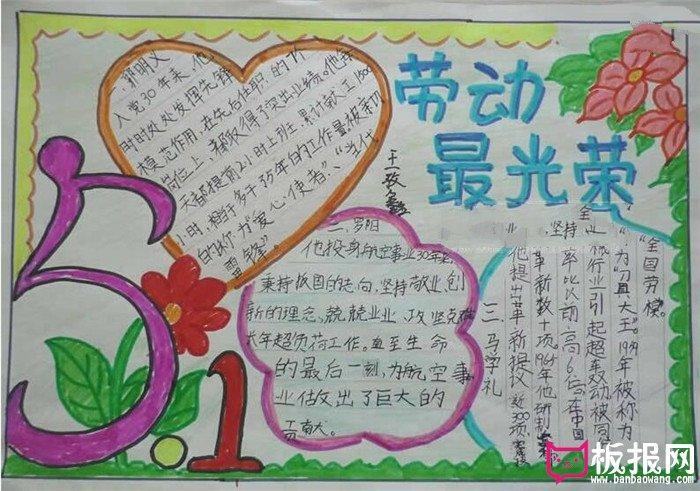 劳动
最光荣
5.1
郭明义
入党30年来,他
时时处处发挥先锋
模范作用,在先后任职的
岗位上,都取得了突出业绩。他
天都提前2小时上班,累计献工1500
小时,相当于多干了5年的工作量,被亲切
的称为"爱心使者"、"当代
雷锋"。
二、罗阳
他投身航空事业30年
秉持报国的志向,坚持敬业、创
新的理念、兢兢业业、攻坚克
长年超负荷工作。直至生命
的最后一刻,为航空事
业做出了巨大的
贡献。
三、马学礼
他提出革新提议近300项
革新数十项。1964年他研制
率比以前高6倍,在中国
行业引起轰动被同
为"刀具大王"。1959年被称为
"全国劳模。
板报网
www.banbaowang.com